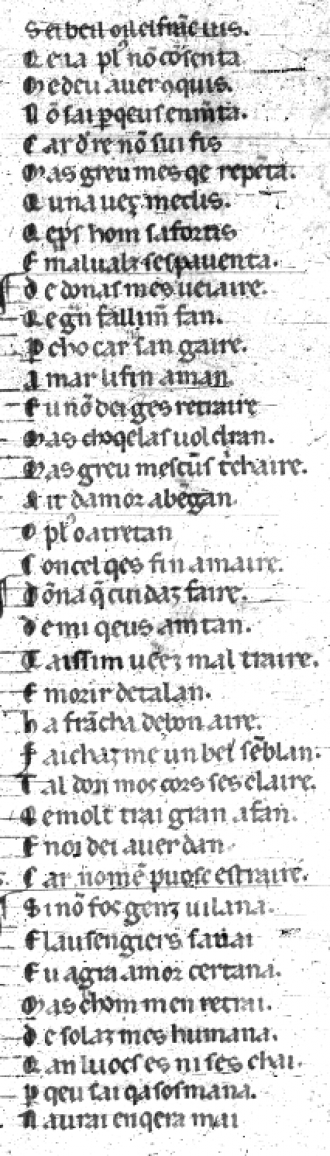 Q e ia pl' nō cōsenta
N ō sai p qeus enm̄ta.
C ar d're nō sui fis
M as greu mes qe repēta.
Q una ueç me clis.
Q eps hom safortis
E maluatz sespauenta.
D e donas mes ueiaire.
Q e gn̄ fallim̄ fan.
P cho car san gaire.
A mar li fin aman
E u nō dei ges retraire
M as choqelas uolchan.
M as greu mes cūs tchaire.
A it damor abēgan
O pl' o atretan
C on cel qes fin amaire.
D ōna q̄ cuidaz faire.
D e mi qeus am tan.
C aissim ueez mal traire.
E morir de talan.
H a frācha de bon aire.
F aichaz me un bel sēblan.
T al don mos cors ses claire.
Q e molt trai gran afan.
E noi dei auer dan
C ar nomē puosc estraire.
S i nō fos genz uilana.
E lausengiers sauai
E u agra amor certana.
M as chom men retrai.
D e solaz mes humana.
Q an luocs es ni ses chai.
P qeu sai qa sos mana.
N aurai enqera mai